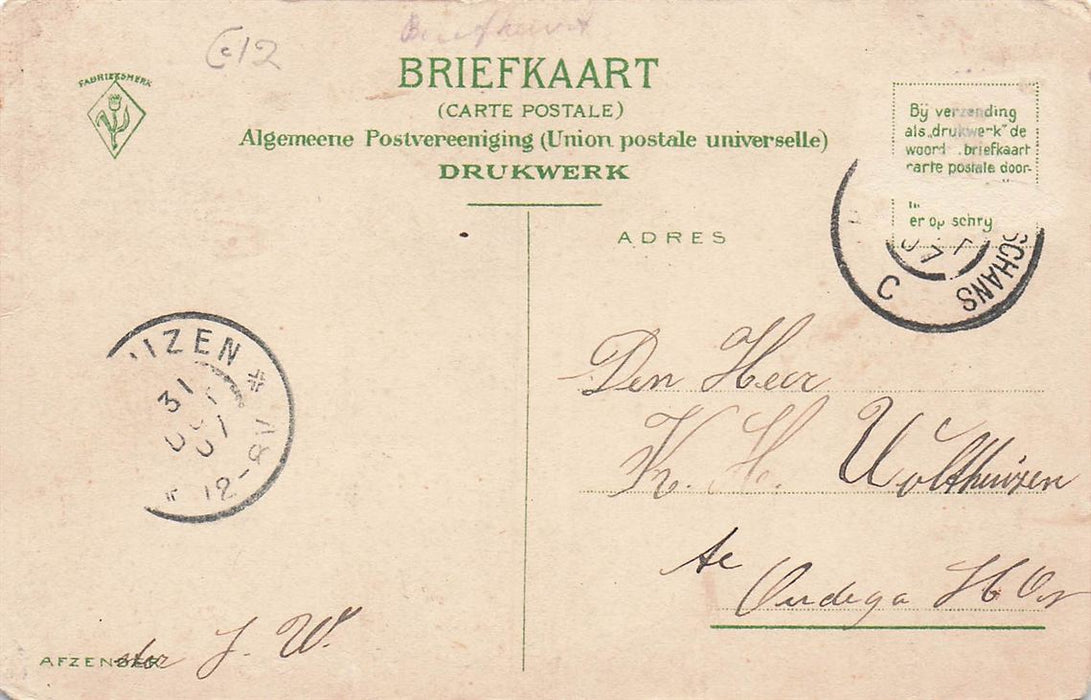 c12
Briefkaart
FABRIEKSMERK
BRIEFKAART
(CARTE POSTALE)
Algemeene Postvereeniging (Union postale universelle)
DRUKWERK
Bij verzending
als „drukwerk" de
woord briefkaart
carte postale door-
er op schry
ADRES
SCHANS
C
IZEN
31
12-8V
Den Heer
K. H. Wolthuizen
te
Oudega
AFZENDER
J. W.